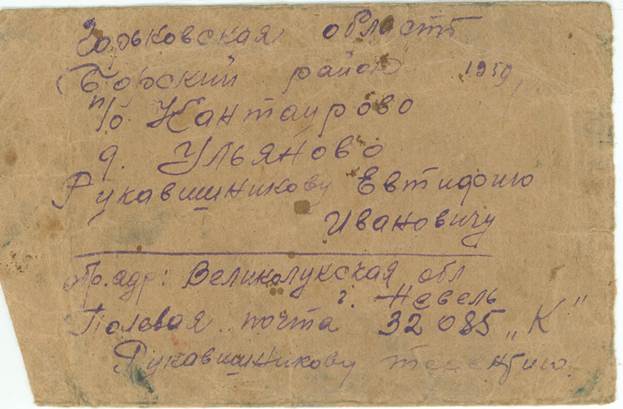 Горьковская област
Борский район 1950
п/о Кантаурово
д. Ульяново
Рукавишникову Евтифию
Ивановичу
Пр. адр: Великолукская обл
г. Невель
Полевая почта 32085 „К"
Рукавишникову Терентию